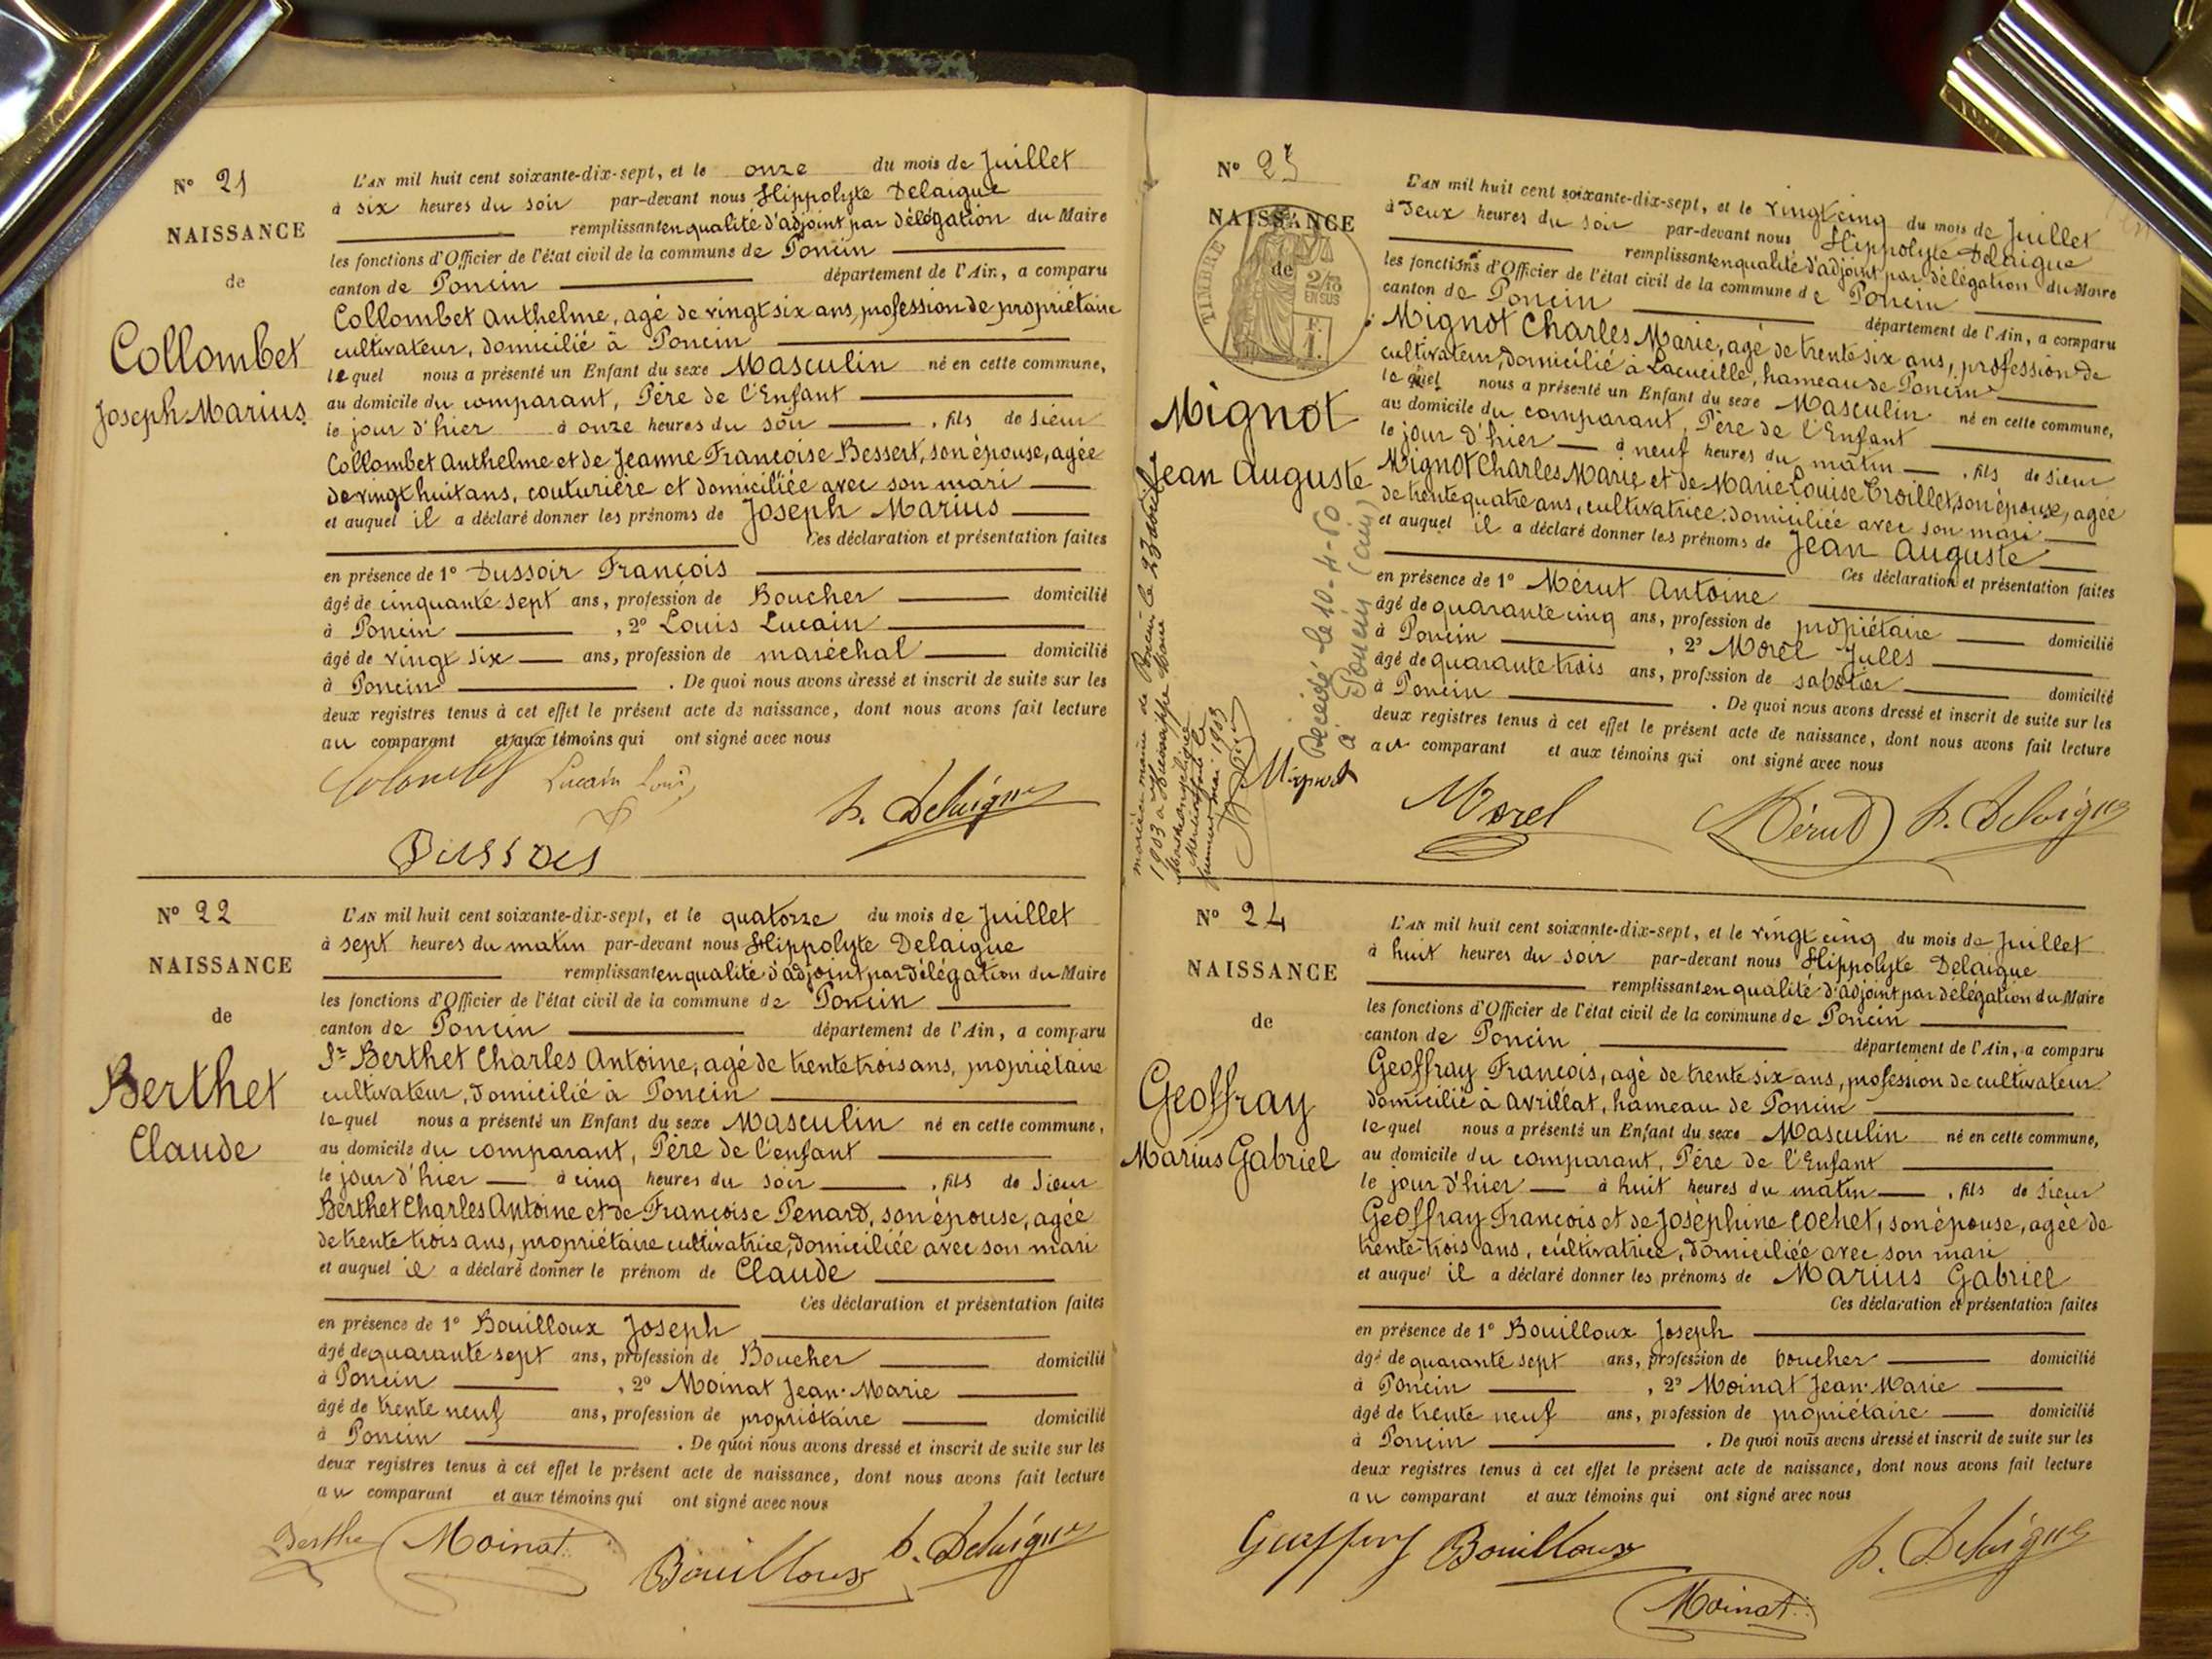 N° 21
NAISSANCE
de
Collombet
Joseph Marius
L'AN mil huit cent soixante-dix-sept, et le onze du mois de Juillet
à six heures du soir par-devant nous Hippolyte Delaigue
remplissant en qualité d'adjoint par délégation du Maire
les fonctions d'Officier de l'état civil de la commune de Poncin
canton de Poncin département de l'Ain, a comparu
Collombet Anthelme, agé de vingt six ans, profession de propriétaire
cultivateur, domicilié à Poncin
lequel nous a présenté un Enfant du sexe Masculin né en cette commune,
au domicile du comparant, Père de l'Enfant
le jour d'hier à onze heures du soir, fils de sieur
Collombet Anthelme et de Jeanne Françoise Bessert, son épouse, agée
de vingt huit ans, couturière et domiciliée avec son mari
et auquel il a déclaré donner les prénoms de Joseph Marius
Ces déclaration et présentation faites
en présence de 1° Dussoir François
âgé de cinquante sept ans, profession de Boucher domicilié
à Poncin, 2° Louis Lucain
âgé de vingt six ans, profession de maréchal domicilié
à Poncin. De quoi nous avons dressé et inscrit de suite sur les
deux registres tenus à cet effet le présent acte de naissance, dont nous avons fait lecture
au comparant et aux témoins qui ont signé avec nous
Lucain Louis
h. Delaigue
N° 22
NAISSANCE
de
Berthet
Claude
L'AN mil huit cent soixante-dix-sept, et le quatorze du mois de Juillet
à sept heures du matin par-devant nous Hippolyte Delaigue
remplissant en qualité d'adjoint par délégation du Maire
les fonctions d'Officier de l'état civil de la commune de Poncin
canton de Poncin département de l'Ain, a comparu
Sr Berthet Charles Antoine, agé de trente trois ans, propriétaire
cultivateur, domicilié à Poncin
lequel nous a présenté un Enfant du sexe Masculin né en cette commune,
au domicile du comparant, Père de l'enfant
le jour d'hier à cinq heures du soir, fils de Sieur
Berthet Charles Antoine et de Françoise Penard, son épouse, agée
de trente trois ans, propriétaire cultivatrice, domiciliée avec son mari
et auquel il a déclaré donner le prénom de Claude
Ces déclaration et présentation faites
en présence de 1° Bouilloux Joseph
âgé de quarante sept ans, profession de Boucher domicilié
à Poncin, 2° Moinat Jean-Marie
âgé de trente neuf ans, profession de propriétaire domicilié
à Poncin. De quoi nous avons dressé et inscrit de suite sur les
deux registres tenus à cet effet le présent acte de naissance, dont nous avons fait lecture
au comparant et aux témoins qui ont signé avec nous
Berthe Moinat Bouilloux h. Delaigue
N° 23
NAISSANCE
de
TIMBRE
2/10
EN SUS
F.
1.
Mignot
Jean Auguste
L'AN mil huit cent soixante-dix-sept, et le vingt cinq du mois de Juillet
à deux heures du soir par-devant nous Hippolyte Delaigue
remplissant en qualité d'adjoint par délégation du Maire
les fonctions d'Officier de l'état civil de la commune de Poncin
canton de Poncin département de l'Ain, a comparu
Mignot Charles Marie, agé de trente six ans, profession de
cultivateur, domicilié à Lacueille, hameau de Poncin
lequel nous a présenté un Enfant du sexe Masculin né en cette commune,
au domicile du comparant, Père de l'Enfant
le jour d'hier à neuf heures du matin, fils de sieur
Mignot Charles Marie et de Marie Louise Troillet, son épouse, agée
de trente quatre ans, cultivatrice, domiciliée avec son mari
et auquel il a déclaré donner les prénoms de Jean Auguste
Ces déclaration et présentation faites
en présence de 1° Mérut Antoine
âgé de quarante cinq ans, profession de propriétaire domicilié
à Poncin, 2° Morel Jules
âgé de quarante trois ans, profession de sabotier domicilié
à Poncin. De quoi nous avons dressé et inscrit de suite sur les
deux registres tenus à cet effet le présent acte de naissance, dont nous avons fait lecture
au comparant et aux témoins qui ont signé avec nous
Mignot Morel Mérut h. Delaigue
Décédé le 10-4-60
à Poncin (ain)
mairie de Poncin le 23 avril
1903
mai 1903
N° 24
NAISSANCE
de
Geoffray
Marius Gabriel
L'AN mil huit cent soixante-dix-sept, et le vingt cinq du mois de Juillet
à huit heures du soir par-devant nous Hippolyte Delaigue
remplissant en qualité d'adjoint par délégation du Maire
les fonctions d'Officier de l'état civil de la commune de Poncin
canton de Poncin département de l'Ain, a comparu
Geoffray François, agé de trente six ans, profession de cultivateur
domicilié à Avrillat, hameau de Poncin
lequel nous a présenté un Enfant du sexe Masculin né en cette commune,
au domicile du comparant, Père de l'Enfant
le jour d'hier à huit heures du matin, fils de Sieur
Geoffray François et de Joséphine Cochet, son épouse, agée de
trente trois ans, cultivatrice, domiciliée avec son mari
et auquel il a déclaré donner les prénoms de Marius Gabriel
Ces déclaration et présentation faites
en présence de 1° Bouilloux Joseph
âgé de quarante sept ans, profession de boucher domicilié
à Poncin, 2° Moinat Jean-Marie
âgé de trente neuf ans, profession de propriétaire domicilié
à Poncin. De quoi nous avons dressé et inscrit de suite sur les
deux registres tenus à cet effet le présent acte de naissance, dont nous avons fait lecture
au comparant et aux témoins qui ont signé avec nous
Geoffray Bouilloux h. Delaigue
Moinat